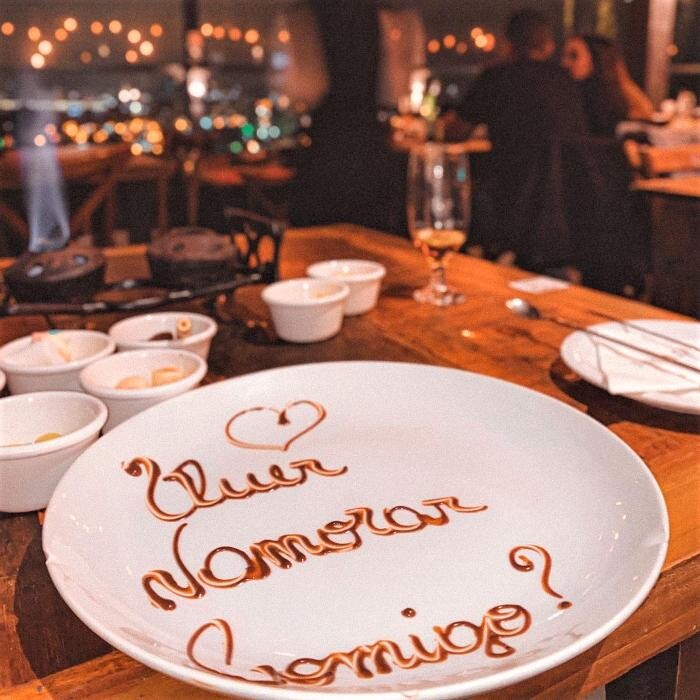 Quer
Namorar
Comigo?